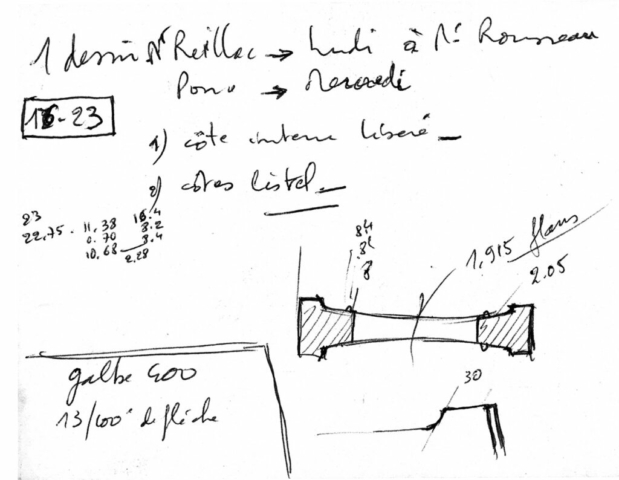 1 dessin Mr Reillac → Lundi à Mr Rousseau
Pour → Mercredi
16-23
1) côte interne liseré
2) côtes listel
23
22,75. 11,38 16.4
0.70 8.2
10,68 8.4
2.28
84
.84
8
1,915 flans
2.05
galbe 400
13/100° de flèche
30